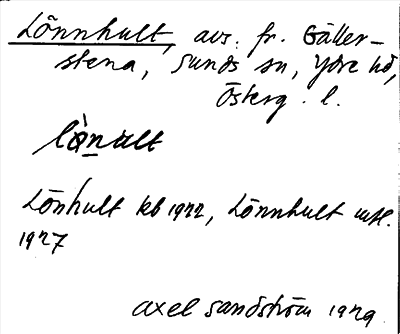 Lönnhult, avs. fr. Gäller-
stena, Sunds sn, Ydre hd,
Österg. l.
lö̀nult
Lönhult kb 1922, Lönnhult mtl.
1927
Axel Sandström 1929